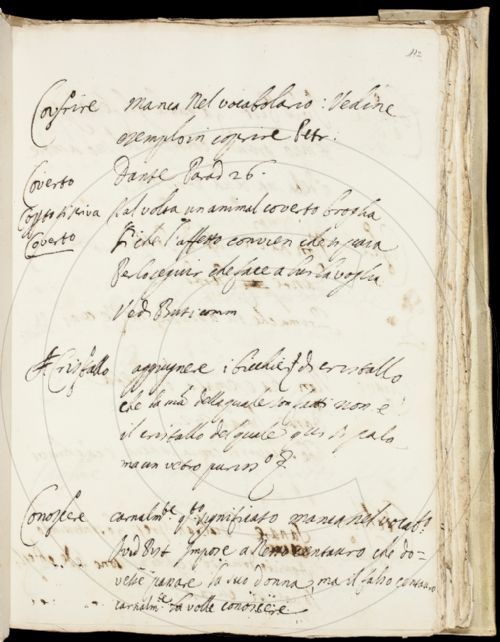 112
Coprire manca nel vocabolario: Vedine
esempio in coprire Petr:
Coverto Dante Parad 26.
Tal volta un animal coverto broglia
Coverto Sì che l'affetto convien che si paia
Per lo seguir che face a lui la voglia
Vedi Buti comm
Cristallo aggiugnere i bicchieri di cristallo
che la mat.a della quale son fatti non è
il cristallo del quale qui si parla
ma un vetro puriss.o
Conoscere carnalm.te q.to significato manca nel vocab.o
Ovid impose a Nesso centauro che do=
vesse passare la sua donna, ma il falso centauro
carnalm.te la volle conoscere